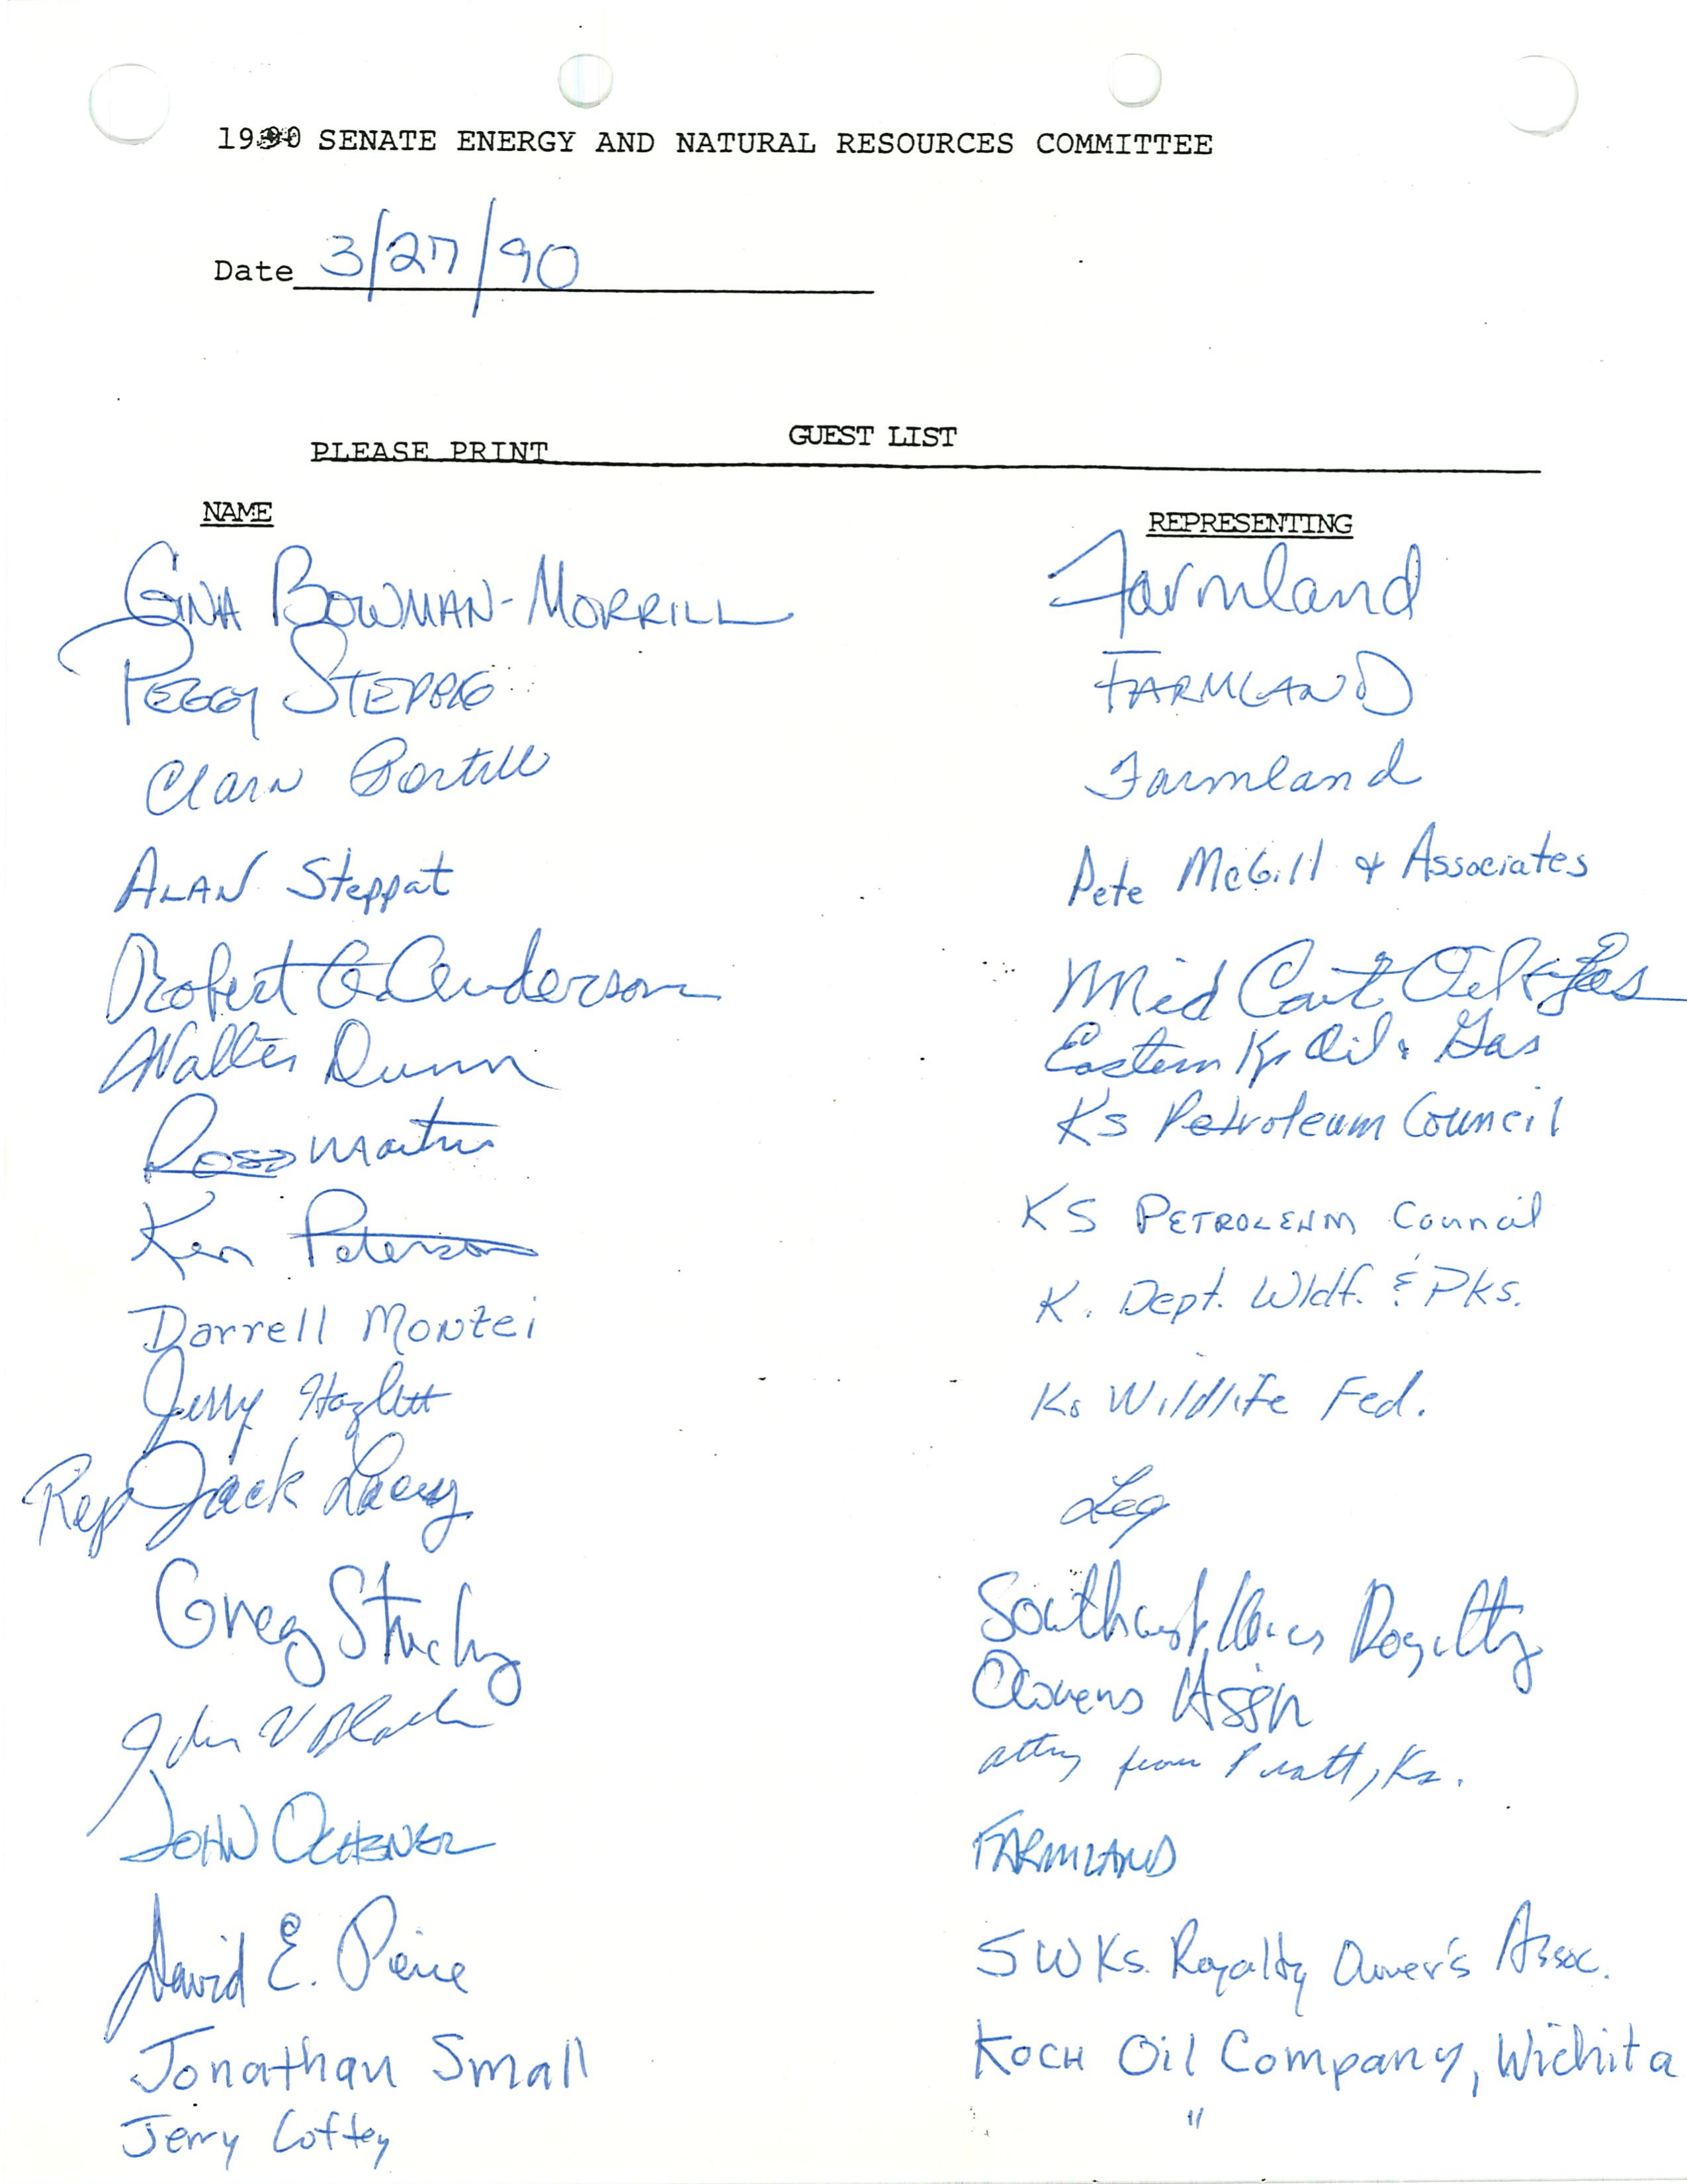 1990 SENATE ENERGY AND NATURAL RESOURCES COMMITTEE
Date 3/27/90
GUEST LIST
PLEASE PRINT
NAME REPRESENTING
GINA BOWMAN-MORRILL Farmland
PEGGY STEPPIG FARMLAND
Farmland
ALAN Steppat Pete McGill & Associates
Robert G. Anderson Mid Cont Oil & Gas
Walter Dunn Eastern Ks Oil & Gas
Ross Martin Ks Petroleum Council
Ken Peterson KS PETROLEUM Council
Darrell Montei K. Dept. Wldf. & Pks.
Jerry Hazlett Ks Wildlife Fed.
Rep Jack Lacey Leg
Greg Stucky Southwest Royalty
Owners Assn
John V Black atty from Pratt, Ks.
JOHN OCHSNER FARMLAND
David E. Pierce SW Ks. Royalty Owner's Assoc.
Jonathan Small KOCH Oil Company, Wichita
Jerry Coffey "